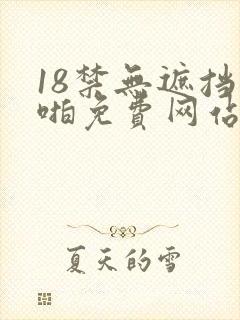 18禁無遮挡
啪免費网佔
夏天的雪